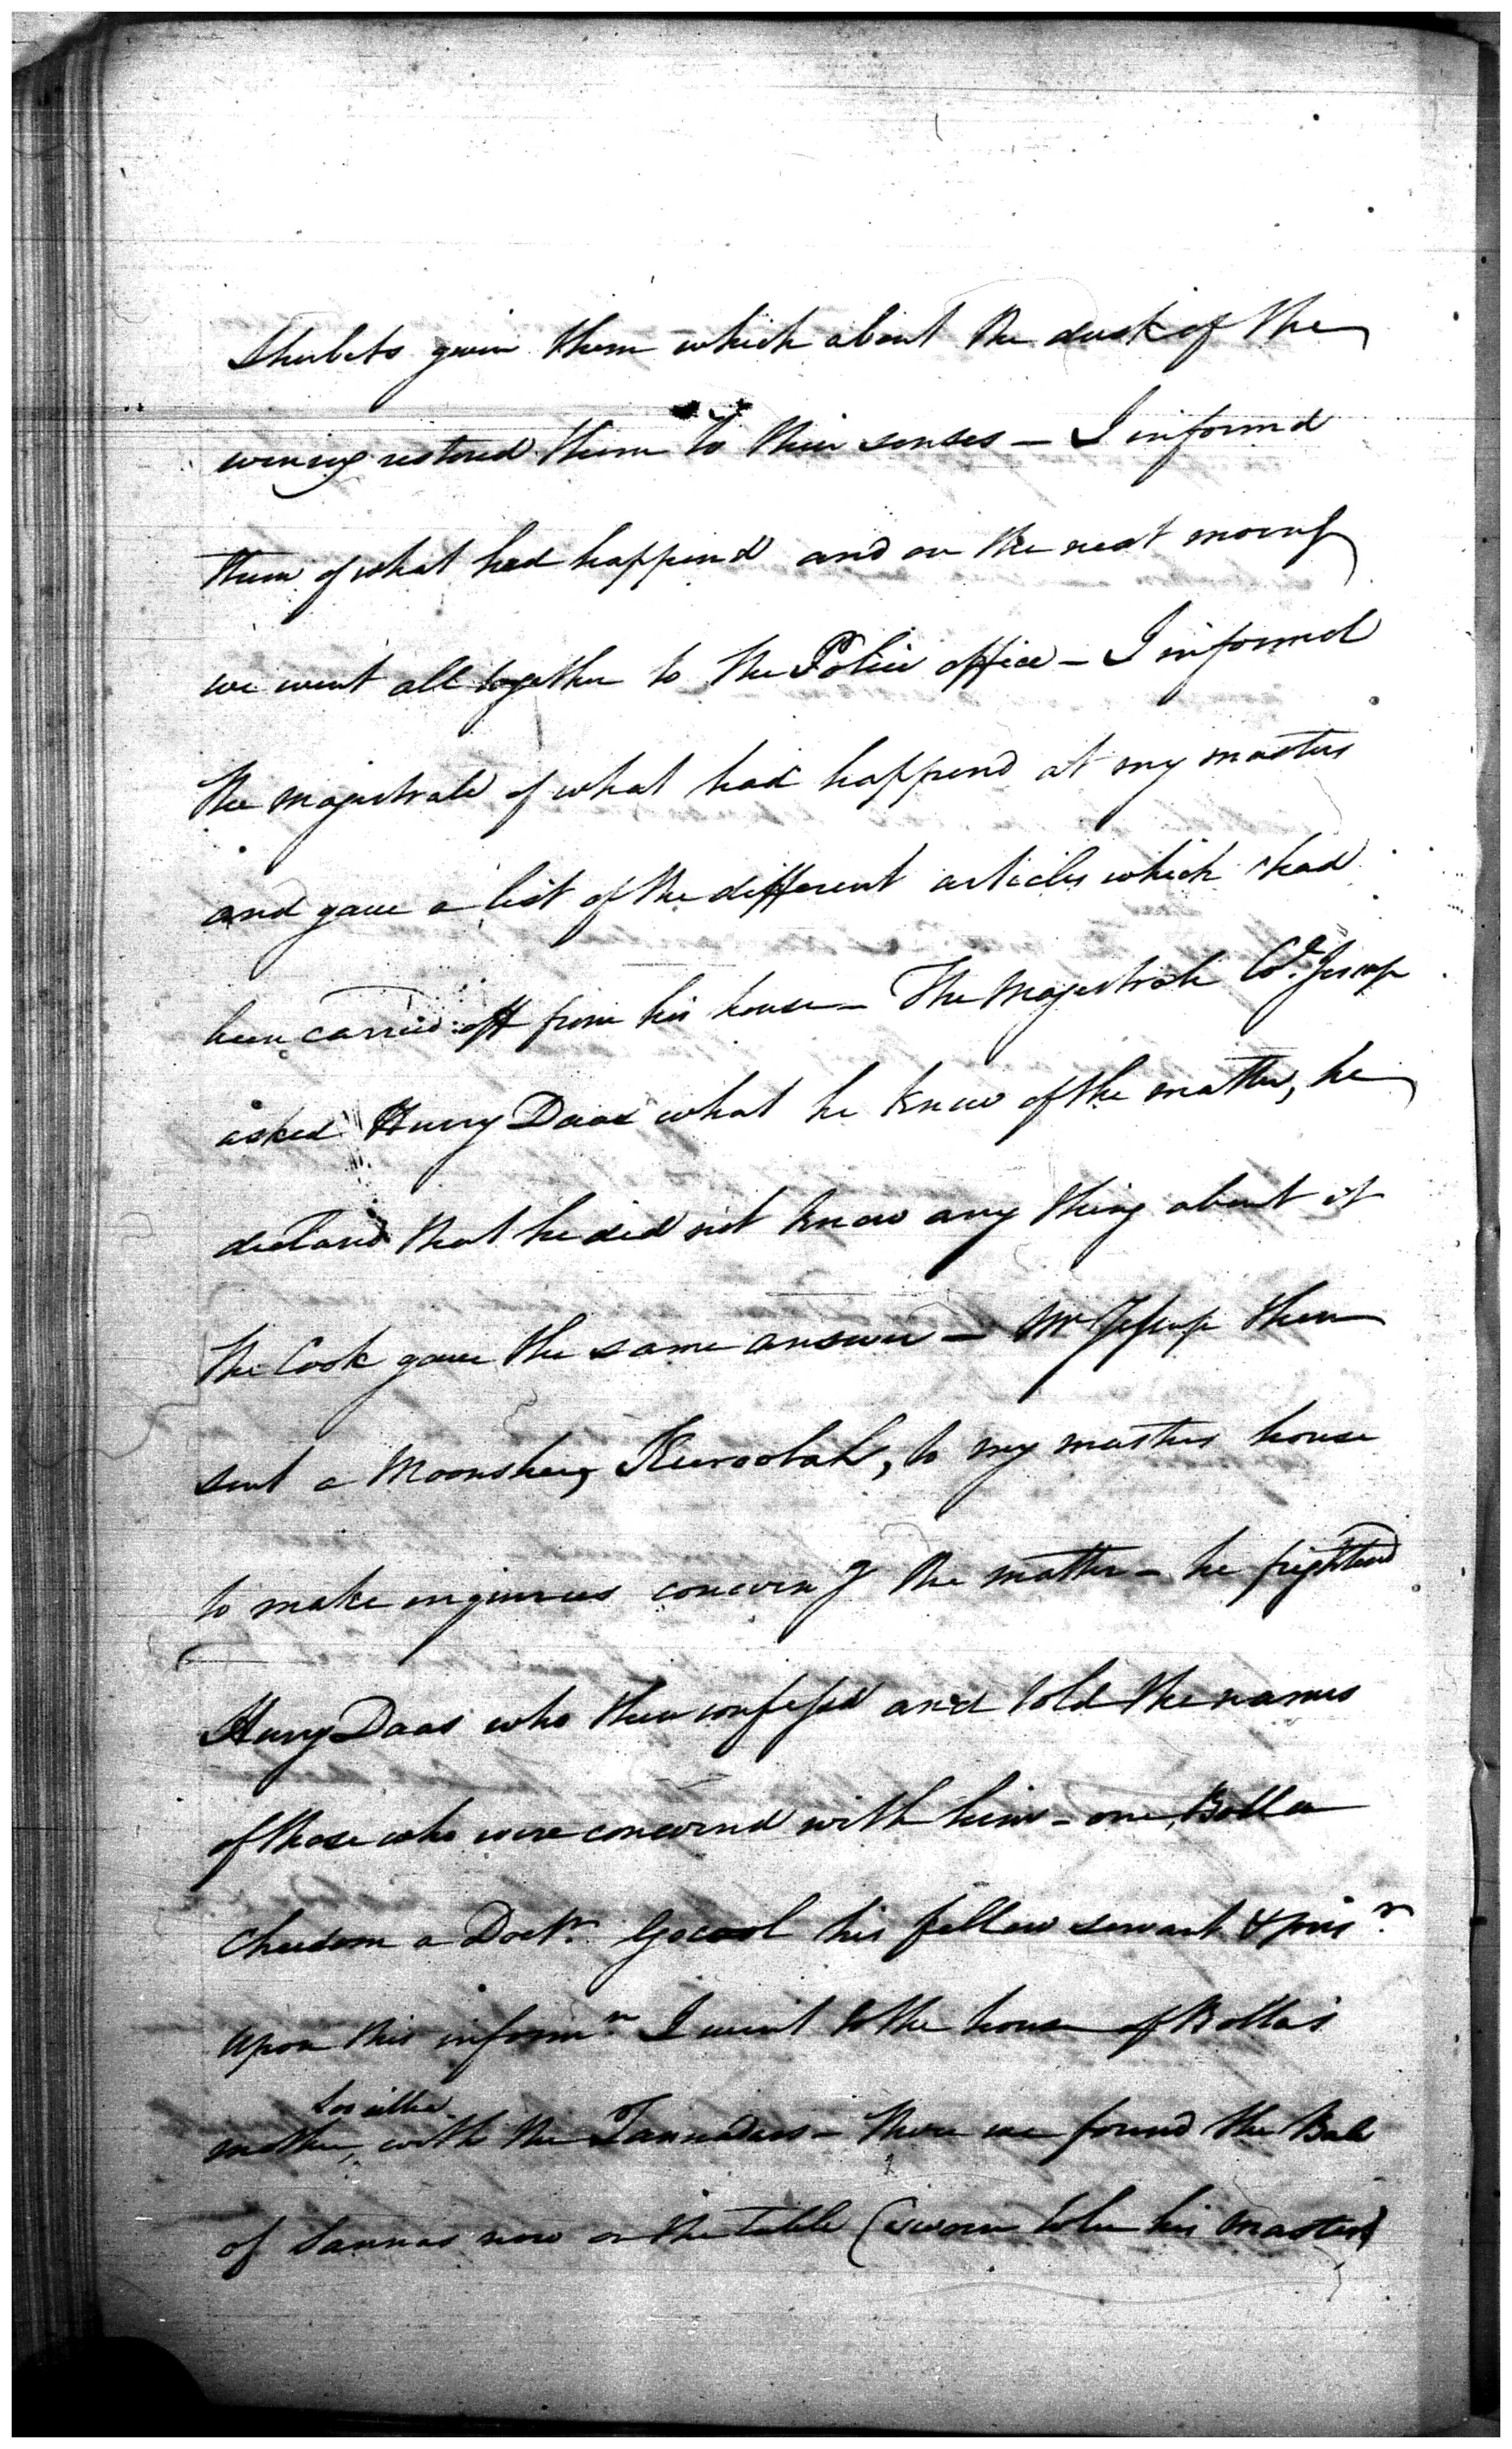 Sherbets given them which about the dusk of the
evening restored them to their senses – I informd
them of what had happend and on the next morng
we went all together to the Police office – I informd
the magistrate of what had happend at my masters
and gave a list of the different articles which had
been carried off from his house – The Magistrate Jessup
asked Hurry Daas what he knew of the matter, he
declared that he did not know any thing about it
the Cook gave the same answer – Mr Jessup then
sent a Moonshey, to my masters house
to make enquiries concerng the matter – he frightend
Hurry Daas who then confessed and told the names
of those who were concernd with him – one, Bolla
a Doctr. Gocool his fellow servant & prisr.
Upon this informn I went to the house of Bolla's
mother, with the Tannadars – there we found the Bale
of Sannas now on the table (sworn to be his masters)